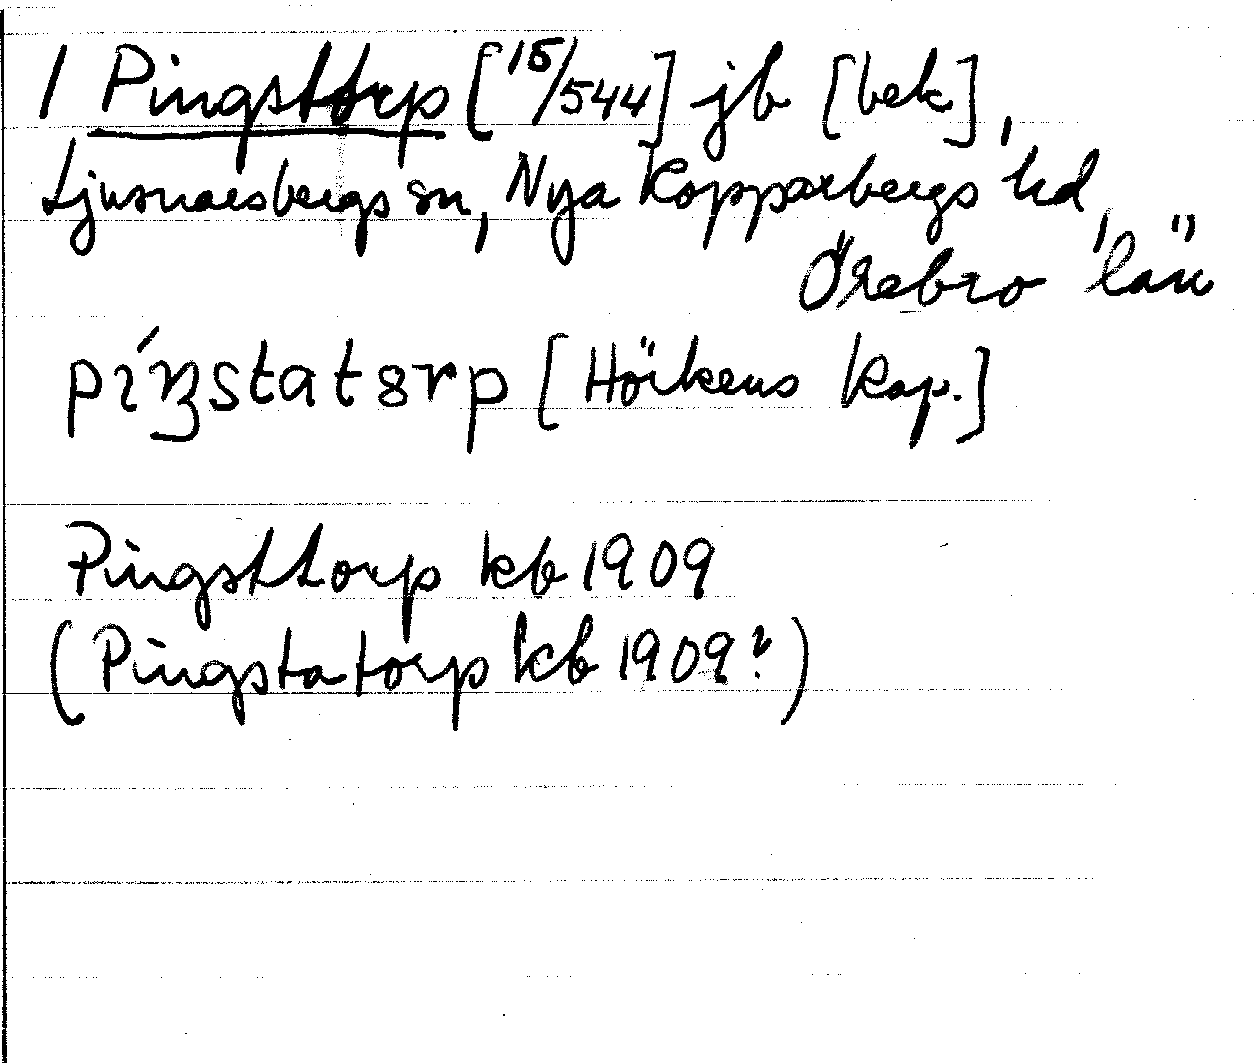 1 Pingsttorp [15/544] jb [bek],
Ljusnarsbergs sn, Nya Kopparbergs hd,
Örebro län
[Hörkens kap.]
Pingsttorp kb 1909
(Pingstatorp kb 1909?)